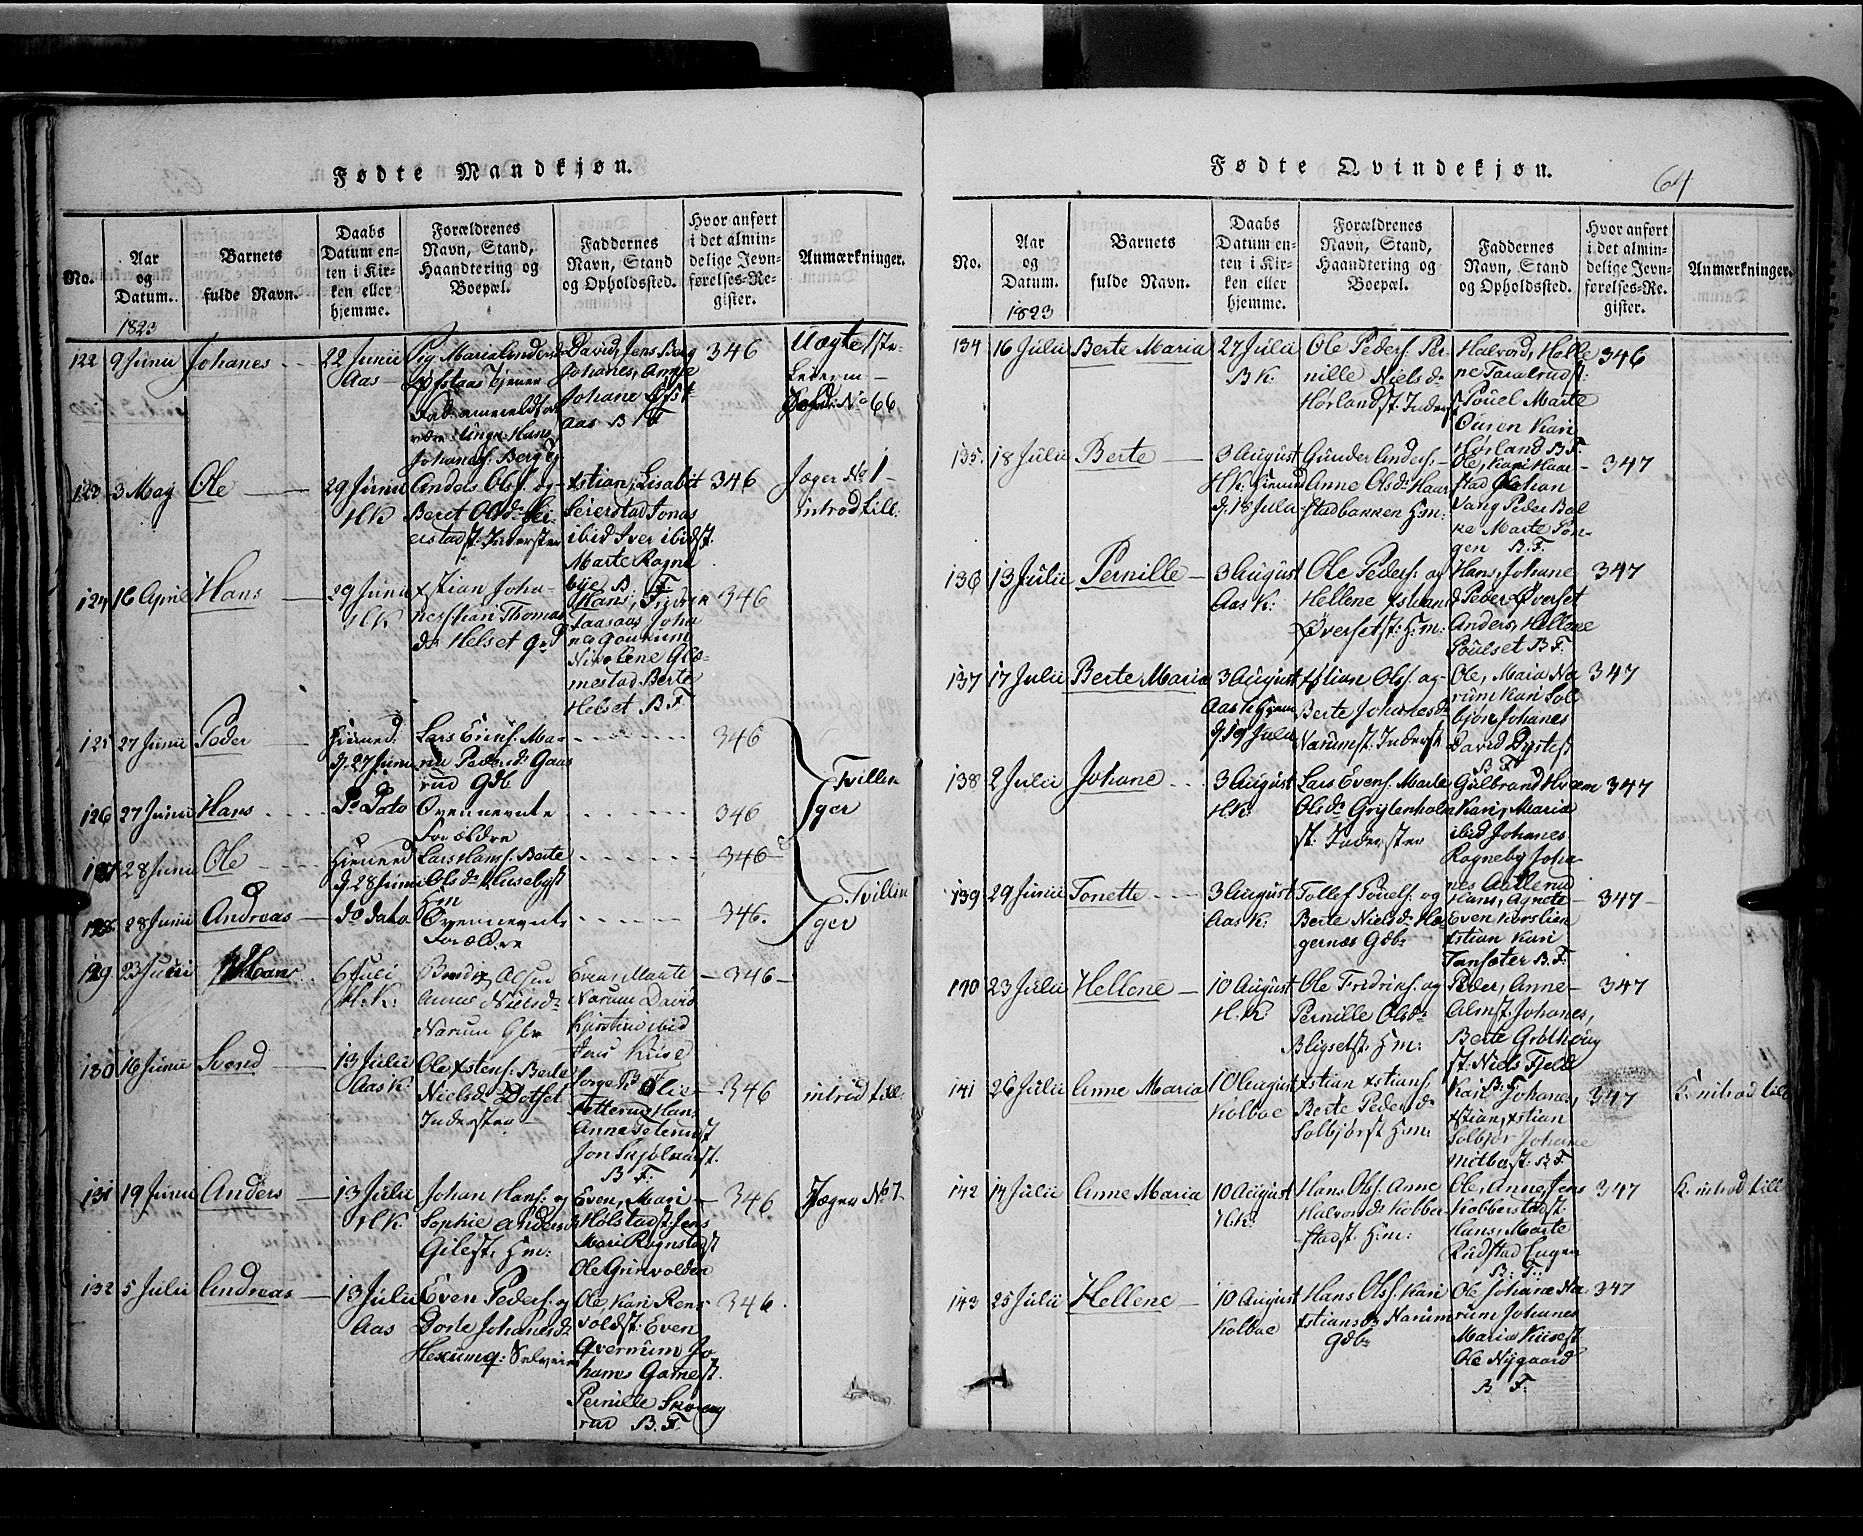 Fødte Mandkjøn.
No.
Aar
og
Datum.
Barnets
fulde Navn.
Daabs
Datum en-
ten i Kir-
ken eller
hjemme.
Forældrenes
Navn, Stand,
Haandtering og
Boepæl.
Faddernes
Navn, Stand
og Opholdssted.
Hvor anført
i det almin-
delige Jevn-
førelses-Re-
gister.
Anmærkninger.
1823
122
9 Junii
Johanes
22 Junii
Aas
Pig Maria
Tjener
Johanes. Berg
David, Jens Berg
Johanes,
Johane
Aas B F
346
Uægte
No 66
123
3 May
Ole
29 Junii
HK
Anders Ols. og
Beret Olsd.
Indersten
xstian, Lisabet
Leierstad Jonas
ibid Iver ibidst.
Marte Rogne
bye B. F
346
Jæger No 1
introd till.
124
16 April
Hans
29 Junii
HK
xstian Joha-
Thomas
d. Helset
Hans,
Nikolene Glæ-
mestad Berte
Helset B F
346
125
27 Junii
Peder
Hiemed:
d. 27 Junii
Lars Ma-
Peders d. Gaas
rud Gdb
346
Tvillin
ger
126
27 Junii
Hans
Do Dato
Ovennevnte
Forældre
346
127
28 Junii
Ole
Hiemed
d. 28 Junii
Lars Hans. Berte
Ols d. Husebyst
Hm
346
Tvillin
ger
128
28 Junii
Andreas
Do dato
Ovennevnte
Forældre
346.
129
23 Junii
Hans
6 Juli
H.K.
Olsen
Niels d.
Narum
Even, Marte
Narum David
ibid
Jens Kiise
346
130
16 Junii
Svend
13 Julii
Aas K.
Ole xstens. Berte
Niels d. Dotset
Indersten
Hans
Anne
Jon
B F.
346
introd till.
131
19 Junii
Anders
13 Julii
HK
Johan Hans. og
Sophie Anders
Gilest. Hm.
Even, Mari
Holstadst. Jens
Mari Rognstadst
Ole Grinvolden
346
Jæger No 7
132
5 Julii
Andreas
13 Julii
Aas
Even Peders. og
Dorte Johanes d.
Hexum
Ole, Kari Rens
voldst. Even
Qvernum Jo
hanes Garnest.
Pernille
rud B. F
346.
Fødte Qvindekjøn.
64
No.
Aar
og
Datum.
Barnets
fulde Navn.
Daabs
Datum en-
ten i Kir-
ken eller
hjemme.
Forældrenes
Navn, Stand,
Haandtering og
Boepæl.
Faddernes
Navn, Stand
og Opholdssted.
Hvor anført
i det almin-
delige Jevn-
førelses-Re-
gister.
Anmærkninger.
1823
134
16 Julii
Berte Maria
27 Julii
B K.
Ole Peders. Per-
nille Niels d.
Hørlandst. Inderst
Halvord, Helle
ne Taralrudst.
Pouel Marte
Ouren Kari
Hørland B F.
346
135.
18 Julii
Berte
3 August
H K. Hiemed
d. 18 Julii
Gunder Anders.
Anne Ols d. Haar
stadbakken H.m:
Ole, Kari Haar-
stad
Vang Peder Bal
ke Marte Ton-
gen B. F.
347
136
13 Julii
Pernille
3 August
Aas K:
Ole Peders. og
Hellene xstians
Øversetst: H:m:
Hans, Johane
Peder Øverset
Anders, Hellene
Poulset B F.
347
137
17 Julii
Berte Maria
3 August
Aas K Hiem
d. 19 Julii
xstian Ols. og
Berte Johanes d.
Narumst. Inderst
Ole, Maria Na
rum Kari Sol
bjør Johanes
David Dystest
B F
347
138
2 Julii
Johane
3 August
H.K.
Lars Evens. Marte
Ols d. Grytenholm
st: Indersten
Gulbrand
Kari, Maria
ibid Johanes
Rogneby Joha
nes
347
139
29 Junii
Tonette
3 August
Aas K.
Tollef Pouels. og
Berte Niels d. Hæ-
gernæs Gdb
Hans, Agnete
Even Korslien
xstian Kari
Tansæter B. F.
347
140
23 Julii
Hellene
10 August
H. K.
Ole Fredriks. og
Pernille Ols d.
Bligsetst. H.m:
Peder, Anne
Almst. Johanes,
Berte Grøtheug
st. Niels Fjeld
B. F.
347
141
26 Julii
Anne Maria
10 August
Kolboe
xstian xstians.
Berte Peders d.
Solbjørst H.m:
Kari Johanes,
xstian, xstian
Solbjør Johane
B F.
347
K. introd till
142
14 Julii
Anne Maria
10 August
H.K.
Hans Ols. Anne
Halvors d. Kobber-
stadst. H:m:
Ole, Anne, Jens
Kobberstadst.
Hans, Marte
Rudstad Engen
B: F:
347
K. introd till
143
25 Julii
Hellene
10 August
Kolboe
Hans Ols. Kari
xstians d. Narum
Gdb
Ole Johane Na
rum Johanes
Maria Kisest
Ole Nygaard
B F.
347